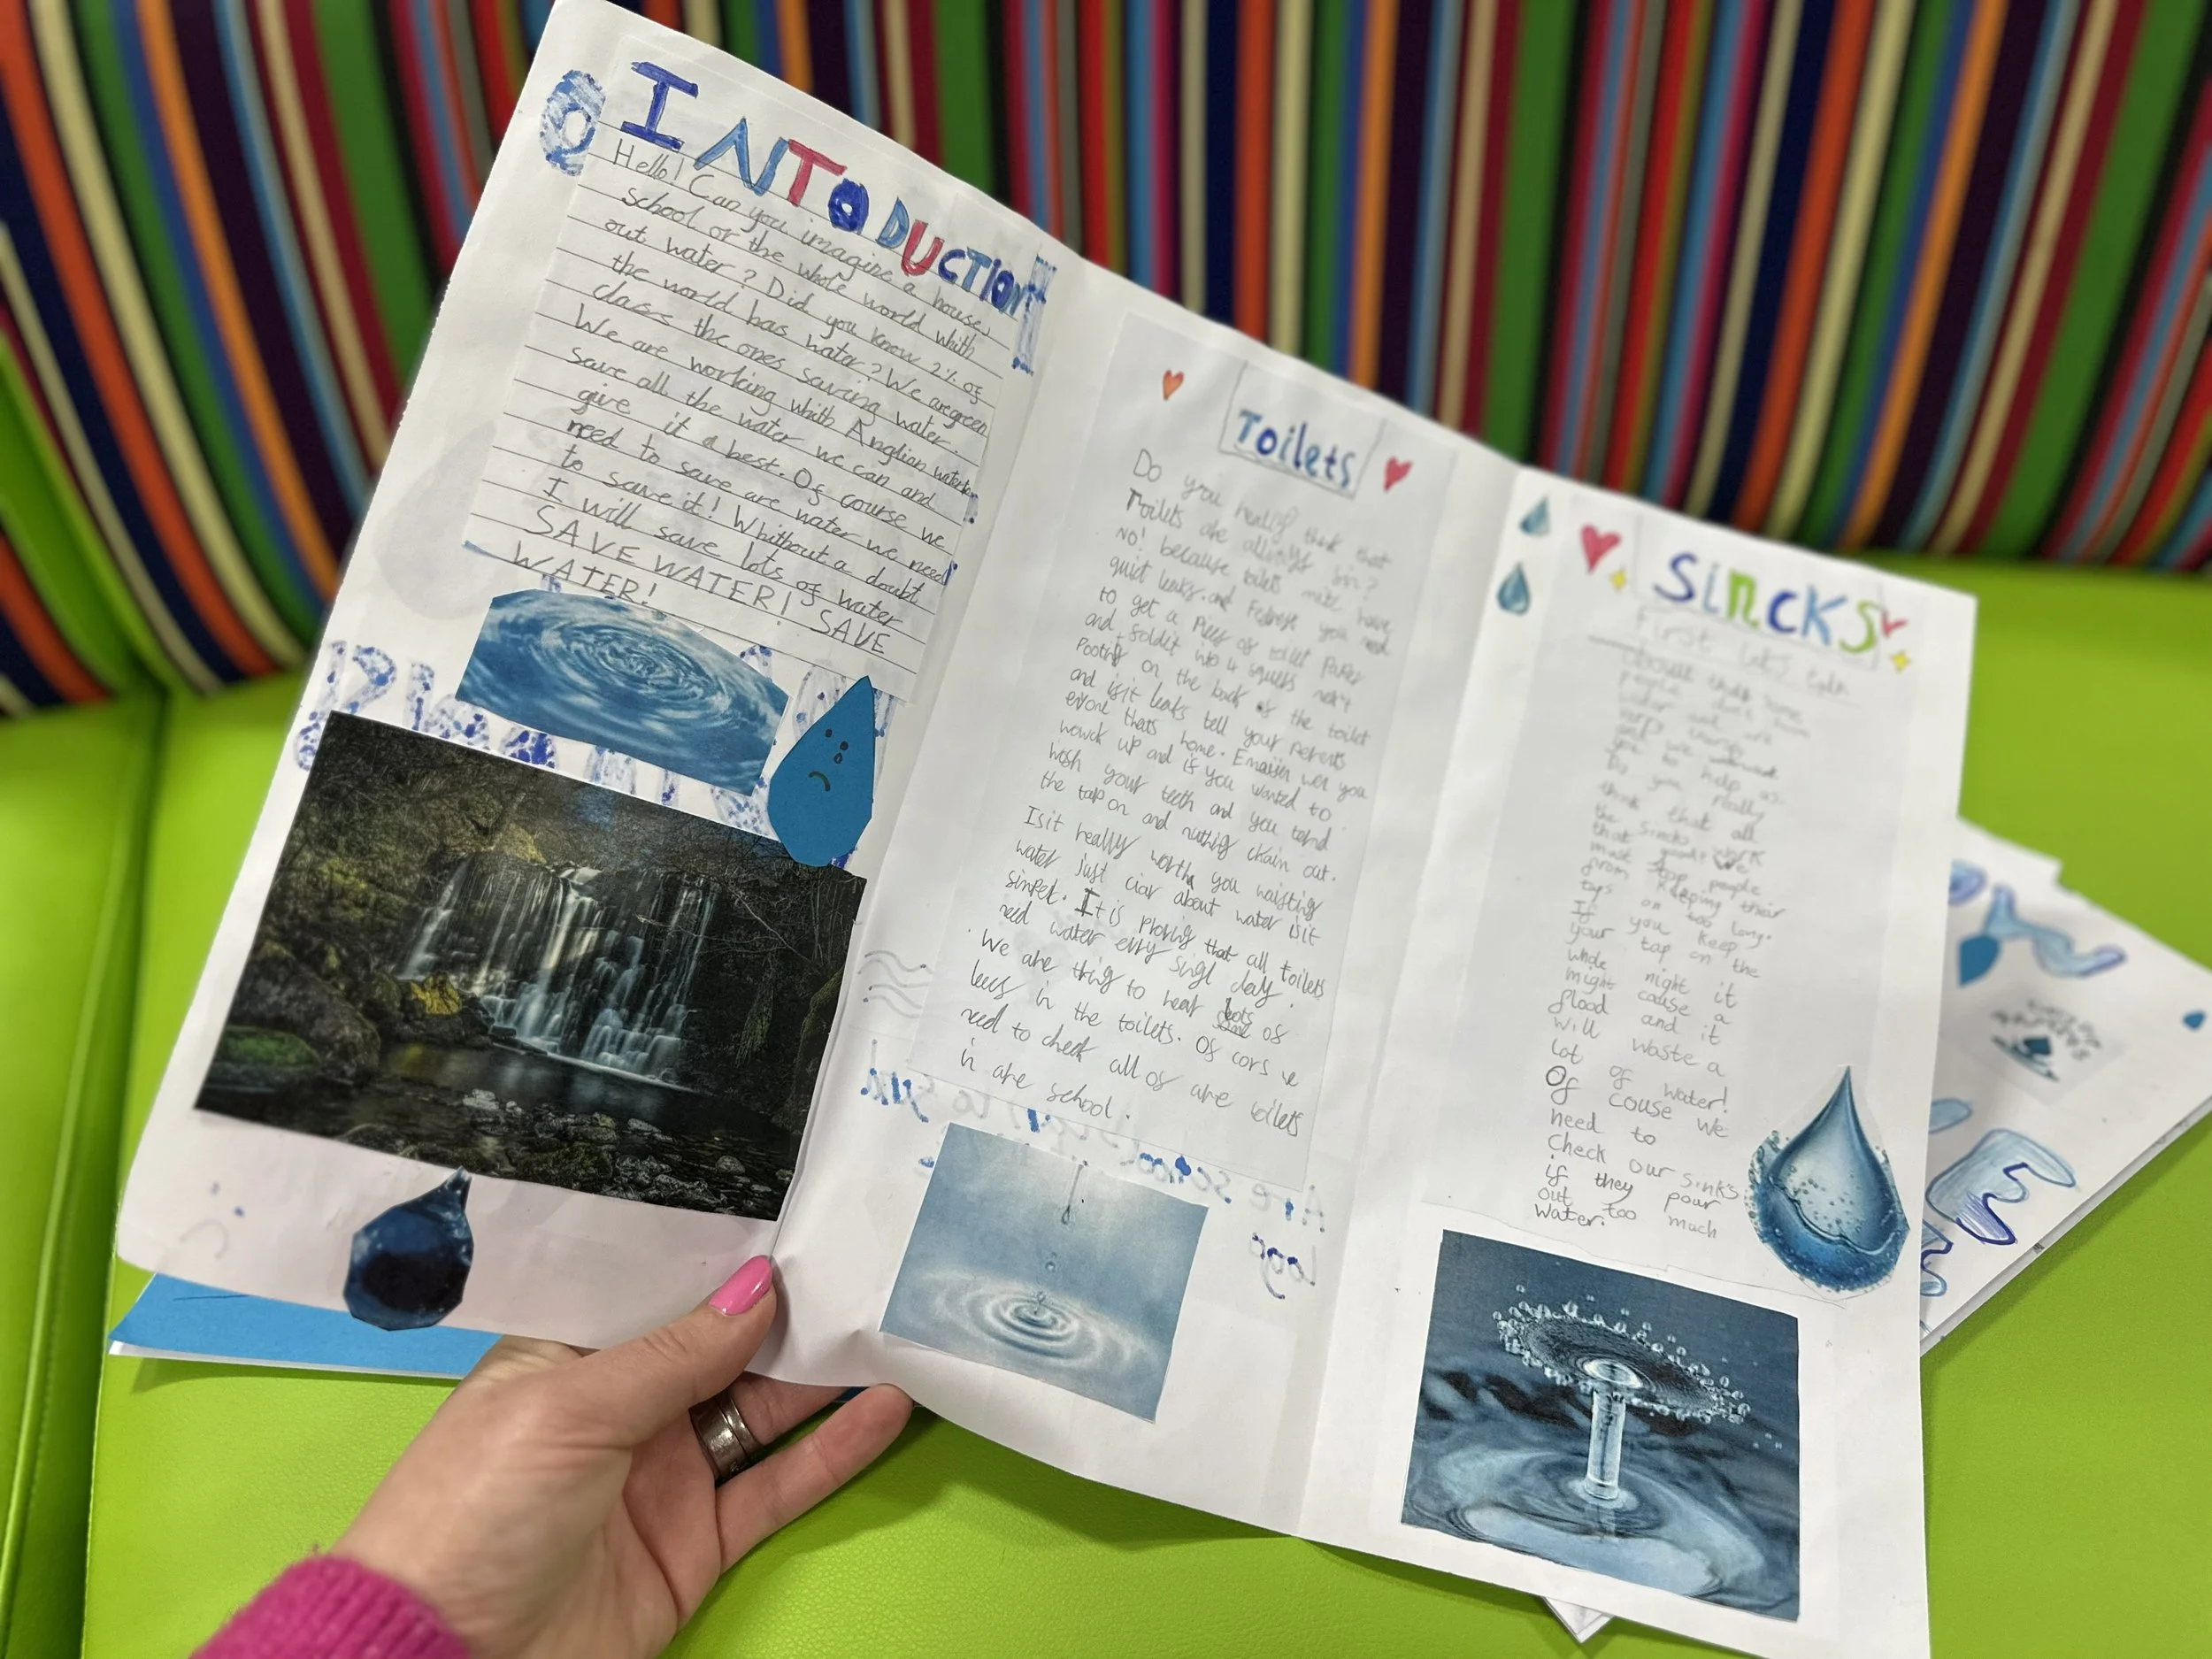 INTODUCTION
Hello! Can you imagine a house,
School or the whole world whith
out water? Did you know 2% of
the world has water? We are green
class the ones saving water.
We are working whith Anglian water to
save all the water we can and
give it a best. Of course we
need to save are water we need
to save it! Whithout a doubt
I will save lots of water
SAVE WATER! SAVE
WATER!
Toilets
Do you really think that
Toilets are allways
No! because toilets mite have
quiet leaks and you need
to get a of toilet paper
and foldit 4 squers next
on the back of the toilet
and isit leaks tell your
home. wen you
up and if you wanted to
wash your teeth and you tend
the tap on and chain out.
Isit really worth you waisting
water just ciar about water isit
simpel. It is proving that all toilets
need water evry singl day.
We are tring to hear lots of
leecs in the toilets. Of cors we
need to check all of are toilets
in are school.
Sincks
First lets talk
about
people
water
very
to help us.
Do you really
think that all
the sincks work
that good? We
must stop people
from keeping their
taps on too long.
If you keep
your tap on the
whole night it
might cause a
flood and it
will waste a
lot of water!
Of couse we
need to
Check our sinks
if they pour
out too much
water.